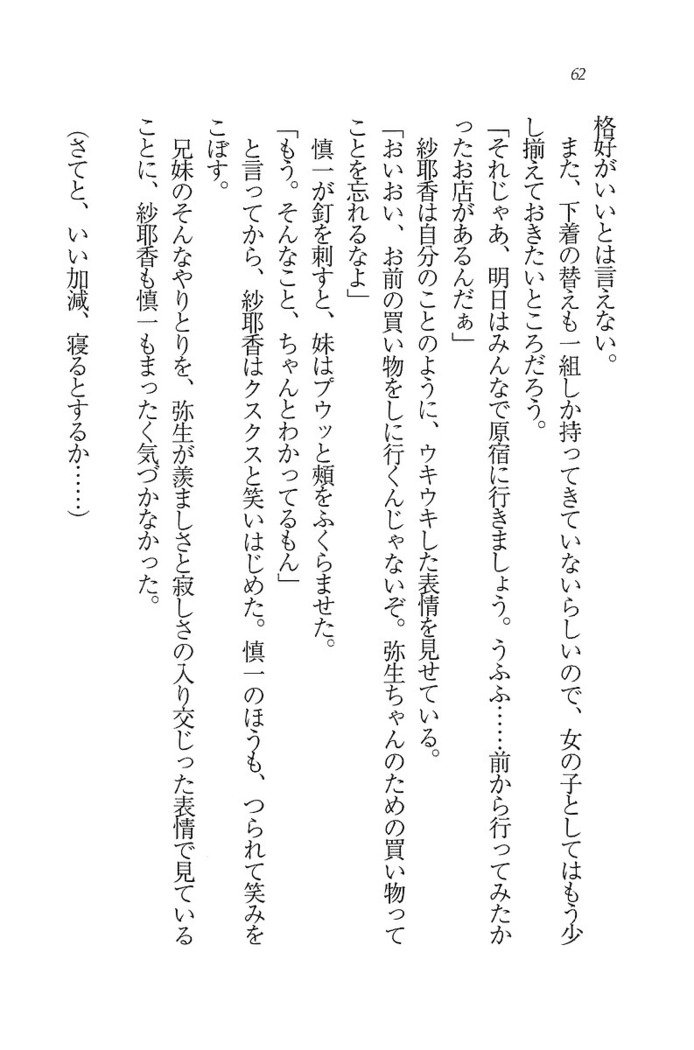 62
格好がいいとは言えない。
また、下着の替えも一組しか持ってきていないらしいので、女の子としてはもう少
し揃えておきたいところだろう。
「それじゃあ、明日はみんなで原宿に行きましょう。うふふ……前から行ってみたか
ったお店があるんだぁ」
紗耶香は自分のことのように、ウキウキした表情を見せている。
「おいおい、お前の買い物をしに行くんじゃないぞ。弥生ちゃんのための買い物って
ことを忘れるなよ」
慎一が釘を刺すと、妹はプウッと頰をふくらませた。
「もう。そんなこと、ちゃんとわかってるもん」
と言ってから、紗耶香はクスクスと笑いはじめた。慎一のほうも、つられて笑みを
こぼす。
兄妹のそんなやりとりを、弥生が羨ましさと寂しさの入り交じった表情で見ている
ことに、紗耶香も慎一もまったく気づかなかった。
（さてと、いい加減、寝るとするか……）